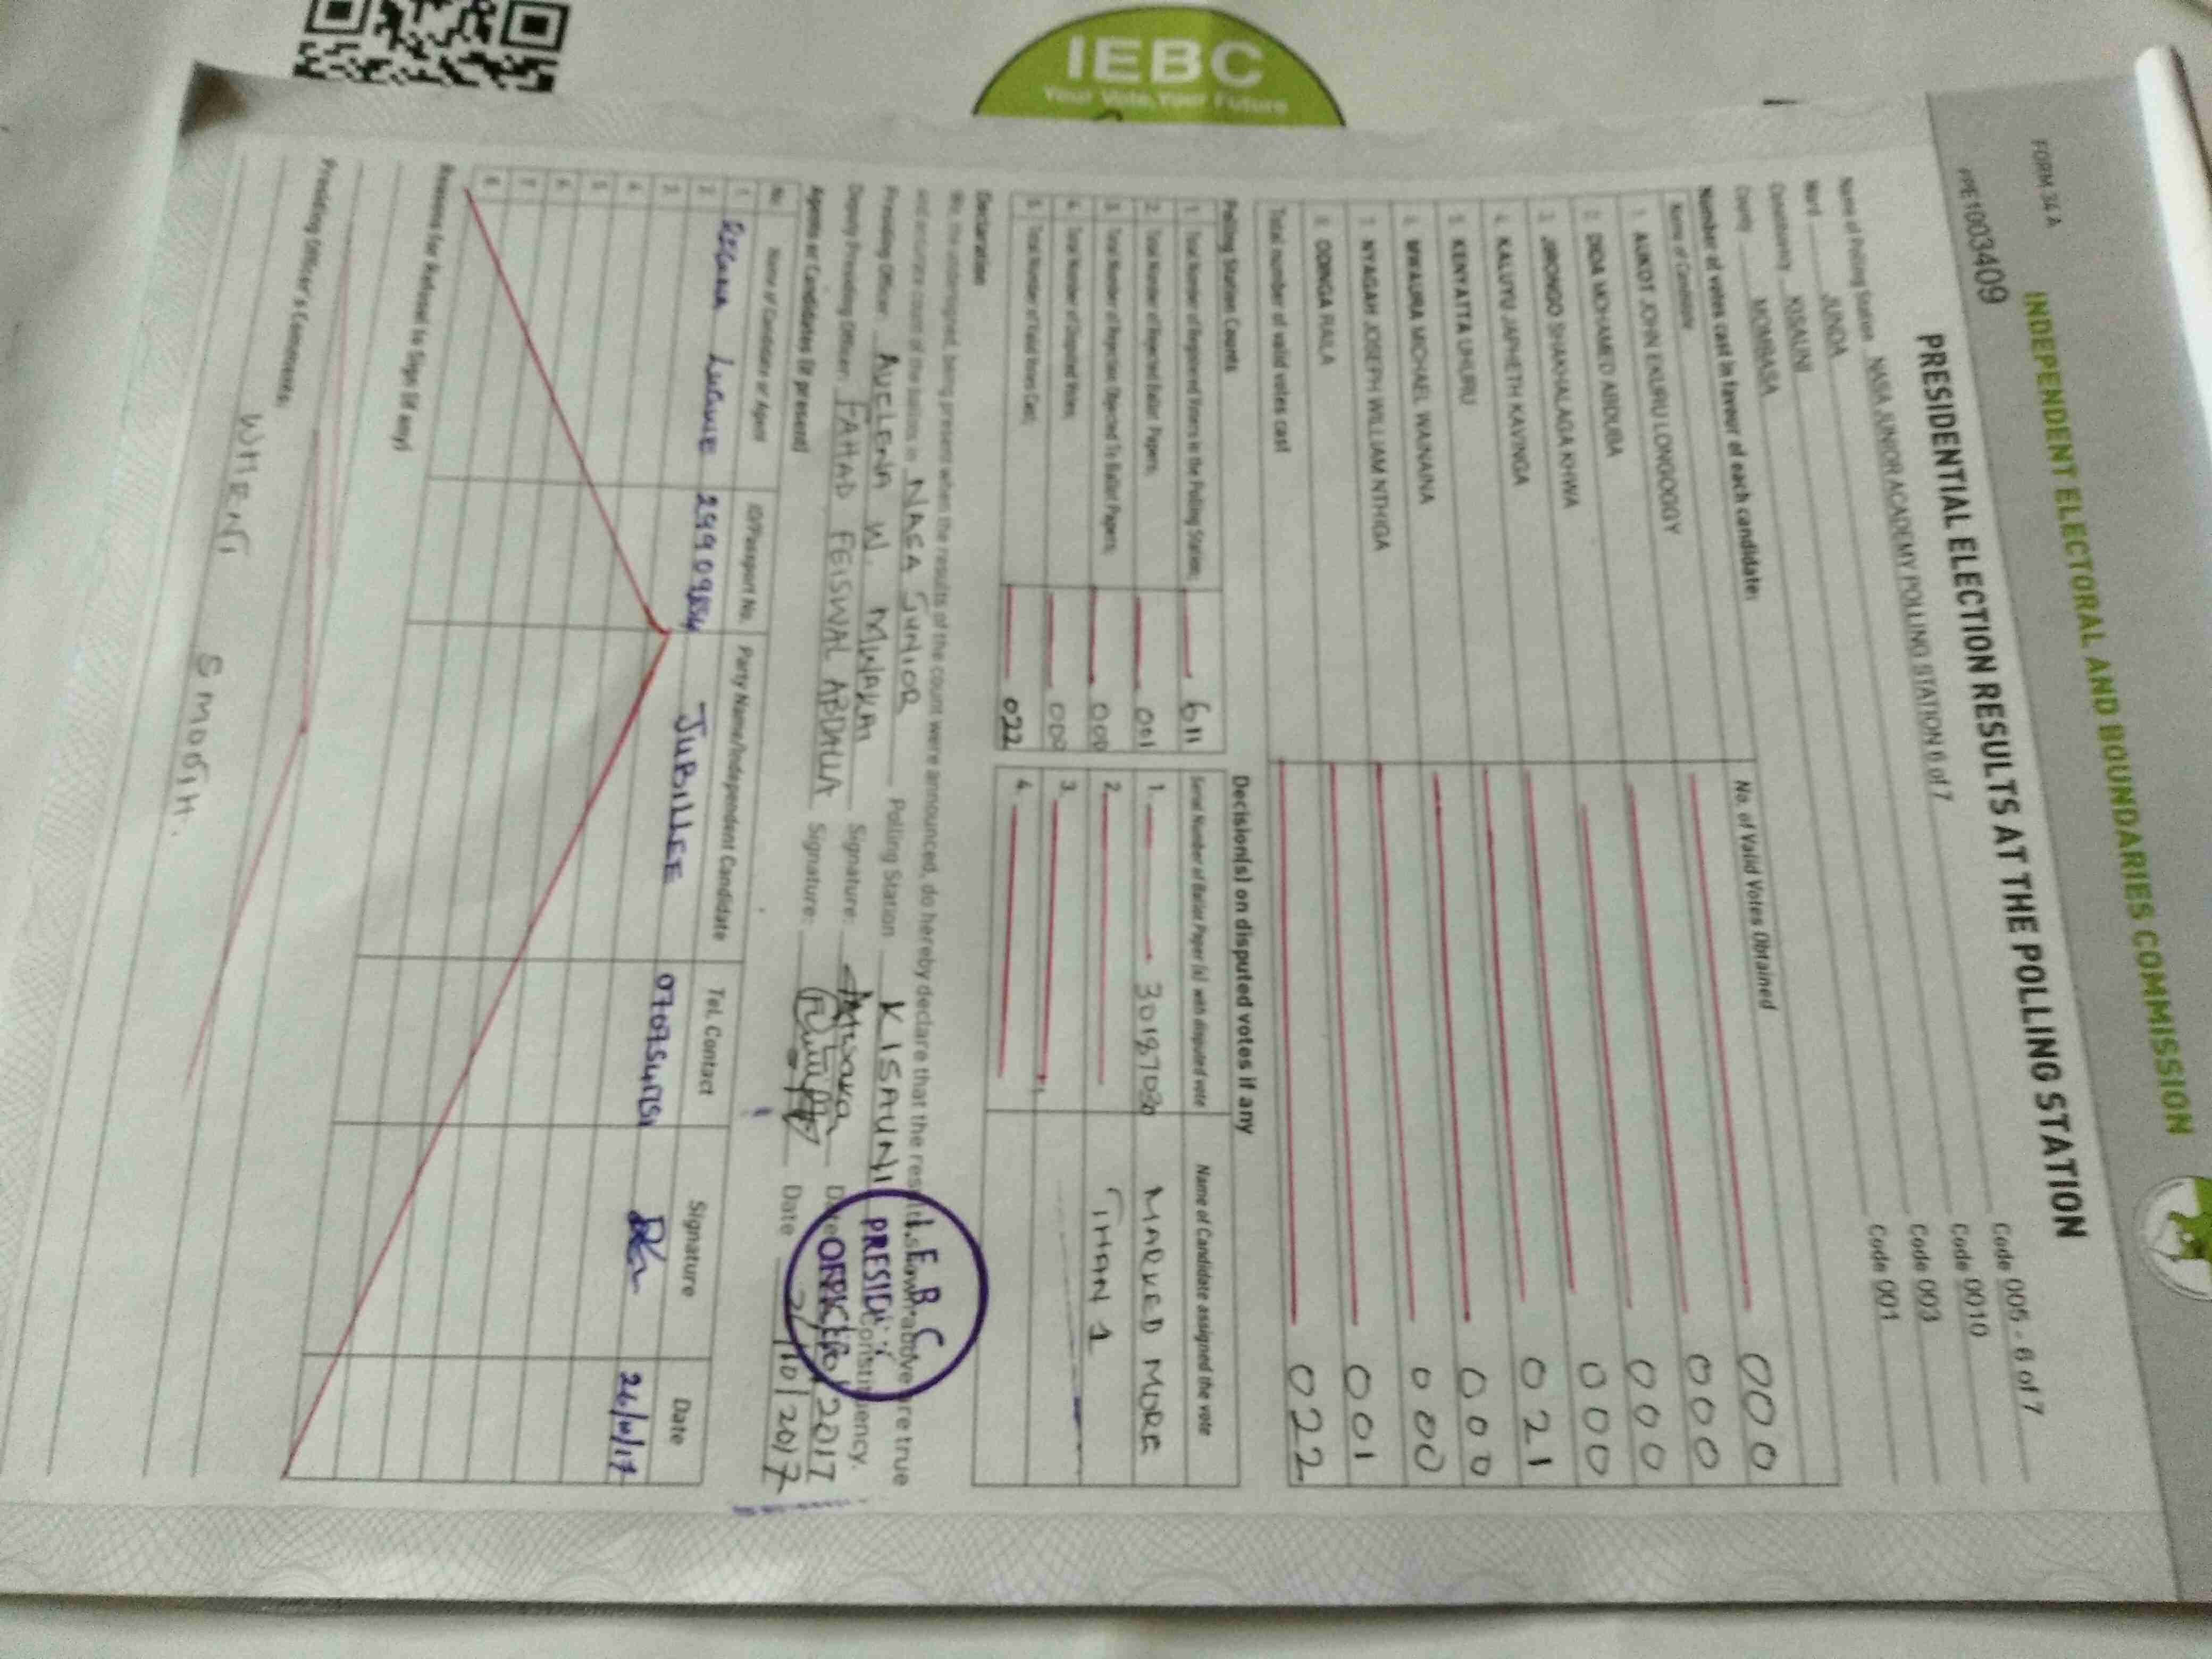 IEBC
Your Vote, Your Future
INDEPENDENT ELECTORAL AND BOUNDARIES COMMISSION
FORM 34 A
PRE1003409
PRESIDENTIAL ELECTION RESULTS AT THE POLLING STATION
Name of Polling Station NASA JUNIOR ACADEMY POLLING STATION 6 of 7 Code 005 - 6 of 7
Ward JUNDA Code 0010
Constituency KISAUNI Code 003
County MOMBASA Code 001
Number of votes cast in favour of each candidate:
Name of Candidate No. of Valid Votes Obtained
1. AUKOT JOHN EKURU LONGOGGY 000
2. DIDA MOHAMED ABDUBA 000
3. JIRONGO SHAKHALAGA KHWA 000
4. KALUYU JAPHETH KAVINGA 000
5. KENYATTA UHURU 021
6. MWAURA MICHAEL WAINAINA 000
7. NYAGAH JOSEPH WILLIAM NTHIGA 000
8. ODINGA RAILA 001
Total number of valid votes cast 022
Polling Station Counts
1. Total Number of Registered Voters in the Polling Station; 611
2. Total Number of Rejected Ballot Papers; 001
3. Total Number of Rejection Objected To Ballot Papers; 000
4. Total Number of Disputed Votes; 000
5. Total Number of Valid Votes Cast; 022
Decision(s) on disputed votes if any
Serial Number of Ballot Paper (s) with disputed vote Name of Candidate assigned the vote
1. MARKED MORE
2. THAN 1
3.
4.
Declaration
We, the undersigned, being present when the results of the count were announced, do hereby declare that the results shown above are true
and accurate count of the ballots in NASA JUNIOR Polling Station KISAUNI Constituency.
Presiding Officer W. Signature: Date 2017
Deputy Presiding Officer: FAHAD FEISWAL ABDALLA Signature: Date /10/2017
I.E.B.C
PRESIDING
OFFICER
Agents or Candidates (if present)
No. Name of Candidate or Agent ID/Passport No. Party Name/Independent Candidate Tel. Contact Signature Date
1 JUBILLEE 26/10/17
2
3
4
5
6
7
8
Reasons for Refusal to Sign (if any)
Presiding Officer's Comments:
WHENT SMOOTH.